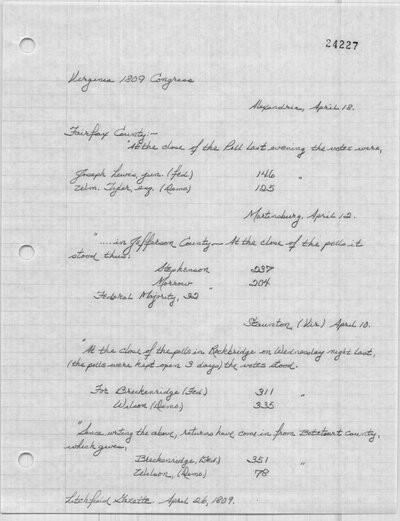 24227
Virginia 1809 Congress
Alexandria, April 18.
Fairfax County:—
"At the close of the Poll last evening the votes were,
Joseph Lewis, jun. (Fed.) 146
Wm. Tyler, esq. (Demo) 125 "
Martinsburg, April 12.
"....in Jefferson County— At the close of the polls it
stood thus:
Stephenson 237
Morrow 204
Federal Majority, 32 "
Staunton, (Vir.) April 10.
"At the close of the polls in Rockbridge on Wednesday night last,
(the polls were kept open 3 days) the votes stood.
For Breckenridge (Fed.) 311
Wilson (Demo) 335 "
"Since writing the above, returns have come in from Botetourt County,
which gives,
Breckenridge, (Fed.) 351
Wilson, (Demo) 78 "
Litchfield Gazette. April 26, 1809.